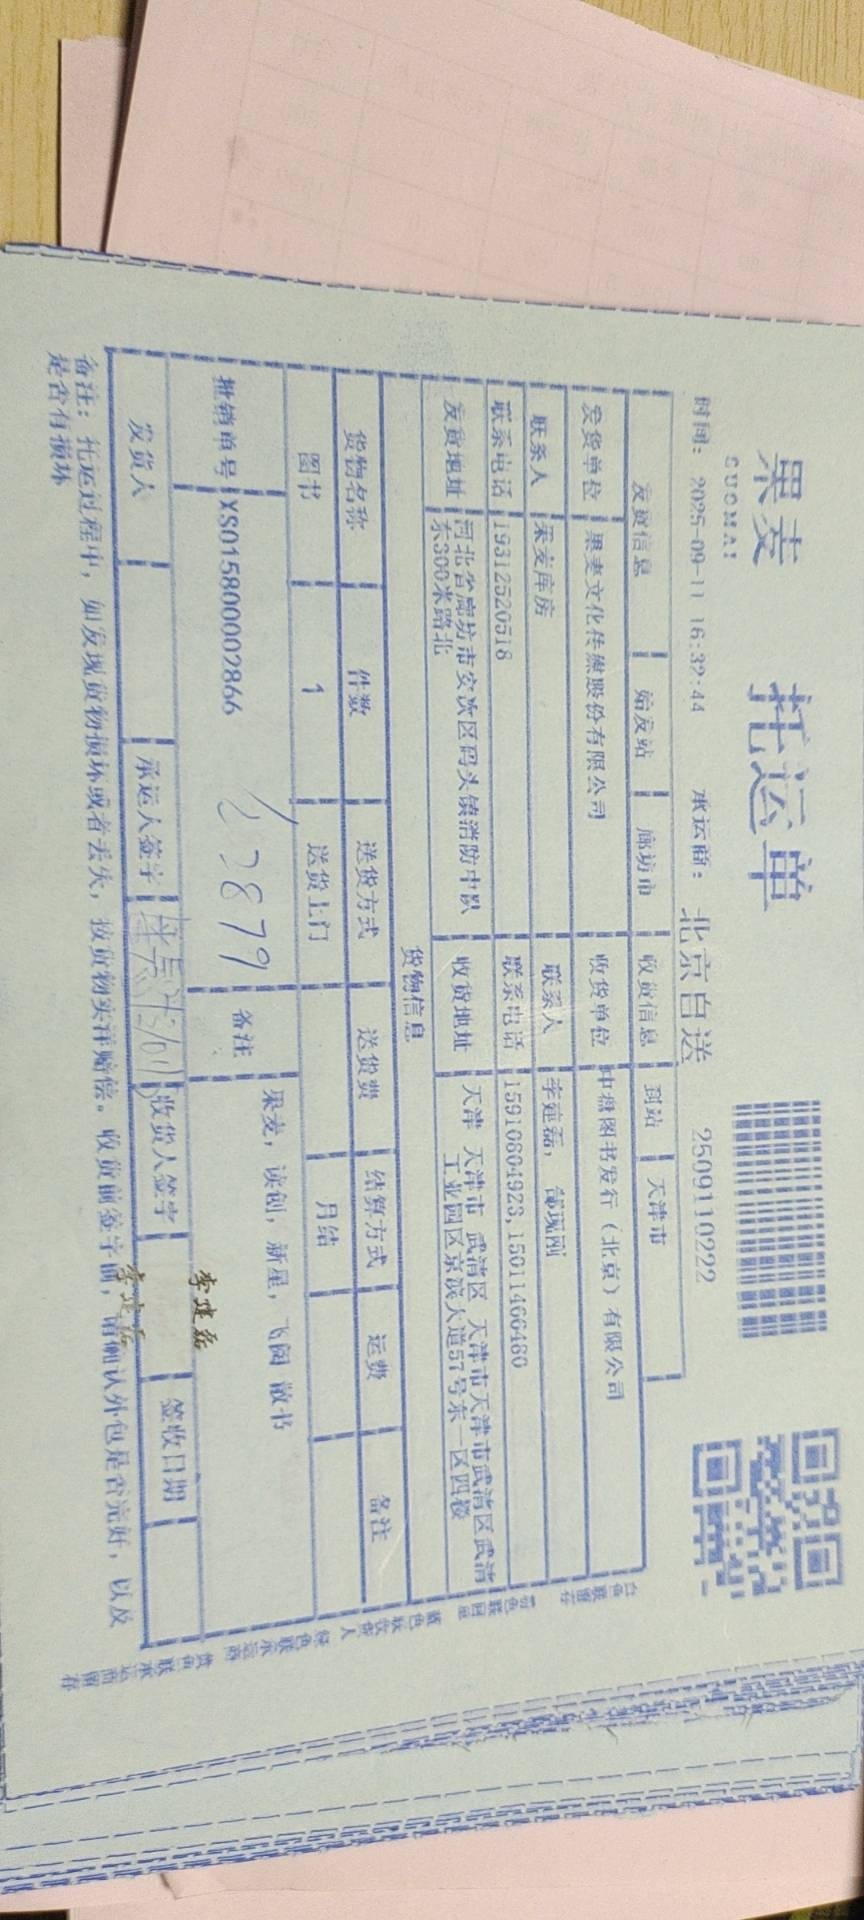 果麦 托运单
GUOMAI
时间: 2025-09-11 16:32:44 承运商: 北京自送 2509110222
发货信息 始发站 廊坊市 收货信息 到站 天津市
发货单位 果麦文化传媒股份有限公司 收货单位 中盘图书发行（北京）有限公司
联系人 果麦库房 联系人 李建磊,
联系电话 19312520518 联系电话 15910804923,15011466480
发货地址 河北省廊坊市安次区码头镇消防中队东300米路北 收货地址 天津 天津市 武清区 天津市天津市武清区武清工业园区京滨大道57号东一区四楼
货物信息
货物名称 件数 送货方式 送货费 结算方式 运费 备注
图书 1 送货上门 月结
批销单号 XS01580002866 备注 果麦, 读创, 新星, 飞阅 散书
22879
李建磊
发货人 承运人签字 收货人签字 李建磊 签收日期
备注: 托运过程中, 如发现货物损坏或者丢失, 按货物实洋赔偿。收货前签字前, 请确认外包是否完好, 以及
是否有损坏
白色联留存
蓝色联收货人
绿色联承运商
黄色联承运商留存